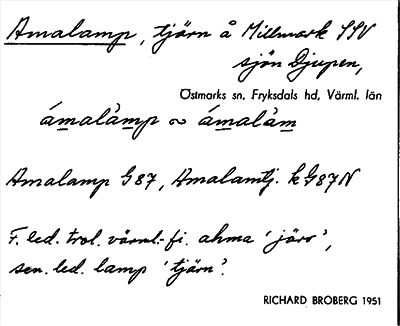 Amalamp, tjärn å Millmark SSV
sjön Djupen,
Östmarks sn, Fryksdals hd, Värml. län
ámalàmp ∾ ámalàm
Amalamp G87, Amalamtj. kG87N
F. led. trol. värml.-fi. ahma 'järv',
sen. led. lamp 'tjärn'.
RICHARD BROBERG 1951